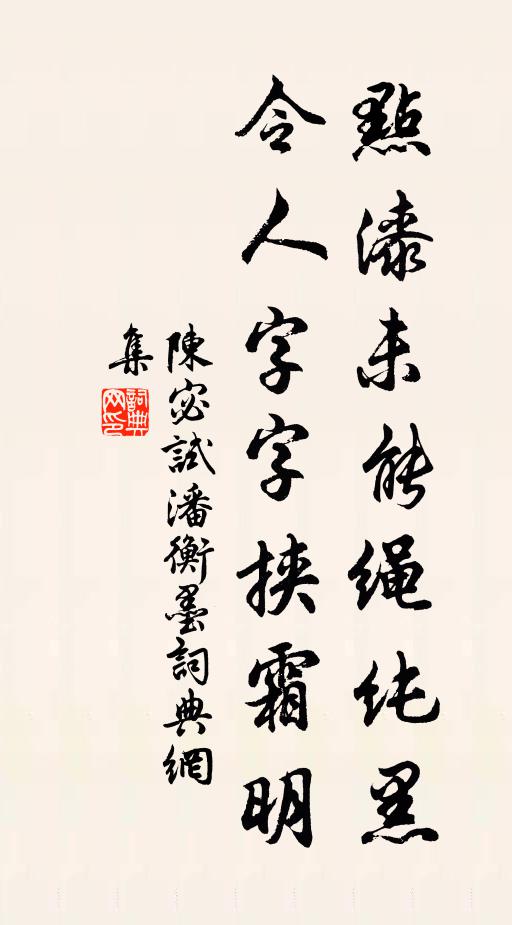 點漆未能繩純黑
令人字字挾霜明
陳宓試潘衡墨詞典網
集
詞典
网印